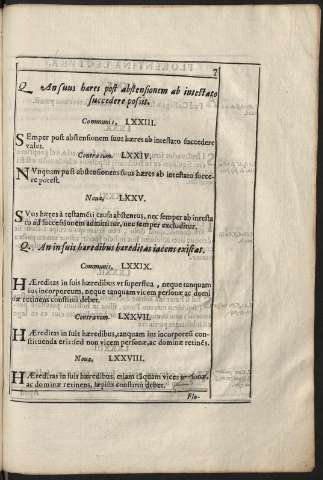 7
Q. An suus hæres post abstensionem ab intestato
succedere possit.
Communis, LXXIII.
SEmper post abstensionem suus hæres ab intestato succedere
valet.
Contrarium. LXXIV.
NVnquam post abstensionem suus hæres ab intestato succe-
re potest.
Noua, LXXV.
SVus hæres à testamēti causa abstentus, nec semper ab intesta
to ad successionem admittitur, nec semper excluditur.
Q. An in suis hæredibus hæreditas iacens existat.
Communis, LXXIX.
HÆreditas in suis hæredibus vt superflua, neque tanquam
ius incorporeum, neque tanquam vicem personæ ac domi
næ retinens constitui debet.
Contrarium. LXXVII.
HÆreditas in suis hæredibus, tanquam ius incorporeũ con-
stituenda erit, sed non vicem personæ, ac dominæ retinēs.
Noua, LXXVIII.
HÆreditas in suis hæredibus, etiam tãquam vices personæ,
ac dominæ retinens, sæpius constitui debet.
Flo-